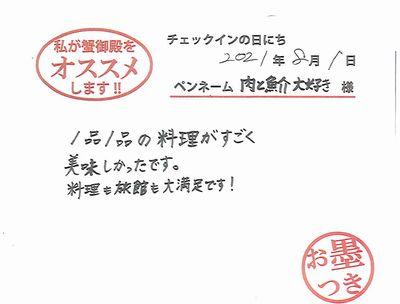 私が蟹御殿を
オススメ
します!!
チェックインの日にち
2021年8月1日
ペンネーム 肉と魚介大好き 様
1品1品の料理がすごく
美味しかったです。
料理も旅館も大満足です!
お墨
つき